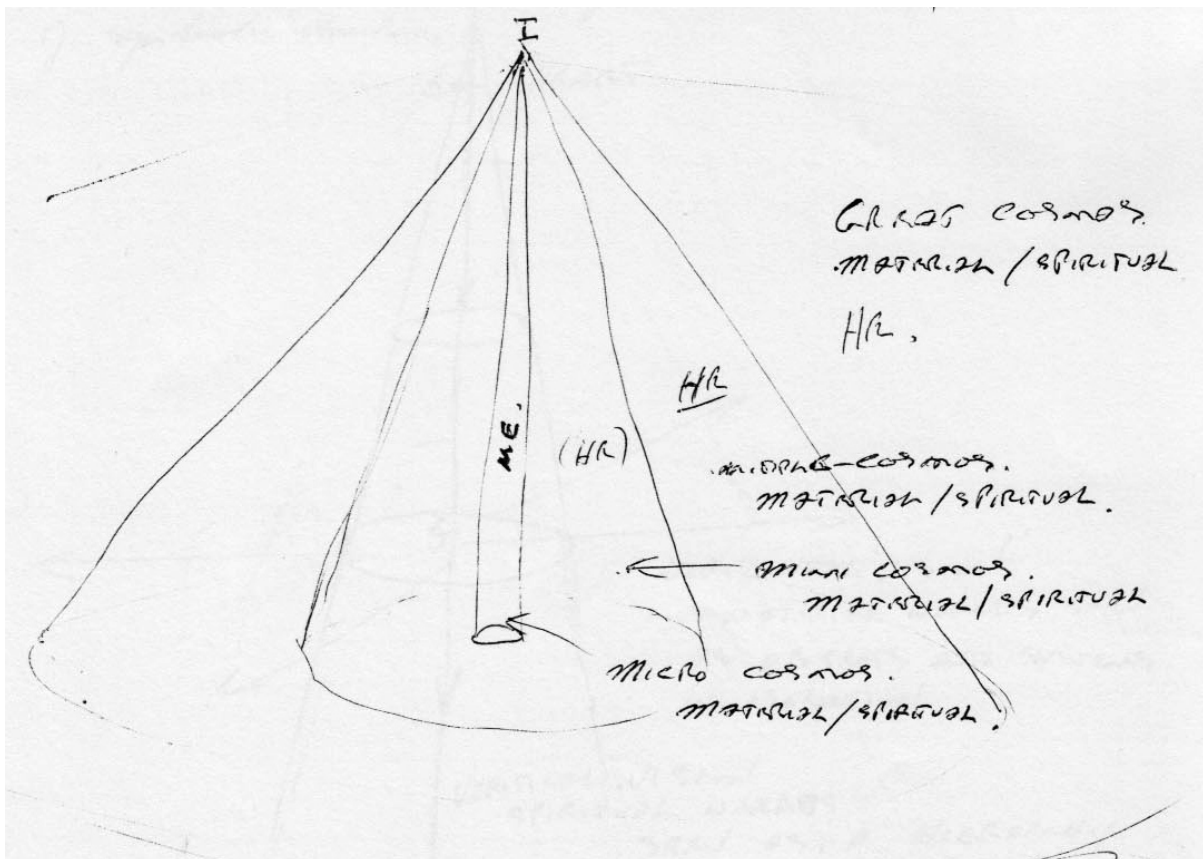 I
GREAT COSMOS.
MATERIAL / SPIRITUAL
HR.
HR
ME.
(HR)
MIDDLE-COSMOS.
MATERIAL / SPIRITUAL.
MINI COSMOS.
MATERIAL / SPIRITUAL
MICRO COSMOS.
MATERIAL / SPIRITUAL.